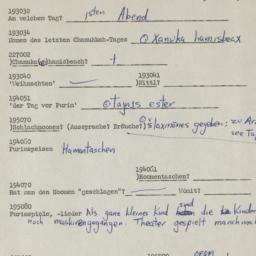 193032
An welchem Tag? 1sten Abend
193034
Namen des letzten Chanukkah-Tages xanuka
227002
)Chanuk(e)hanisbench? +
193040 193041
'Weihnachten' )Nittl?
194051
'der Tag vor Purim' tajnəs ester
195070
)Schlachmones? (Aussprache? Bräuche?) šlaxmónes gegeben; zu
194060
Purimspeisen Hamantaschen
194061
)Homentaschen?
194070
Hat man den Hooman "geschlagen"? Womit?
195080
Purimspiele, -lieder Als ganz kleines Kind sind die Kinder
noch maskiert gegangen. Theater gespielt manchmal